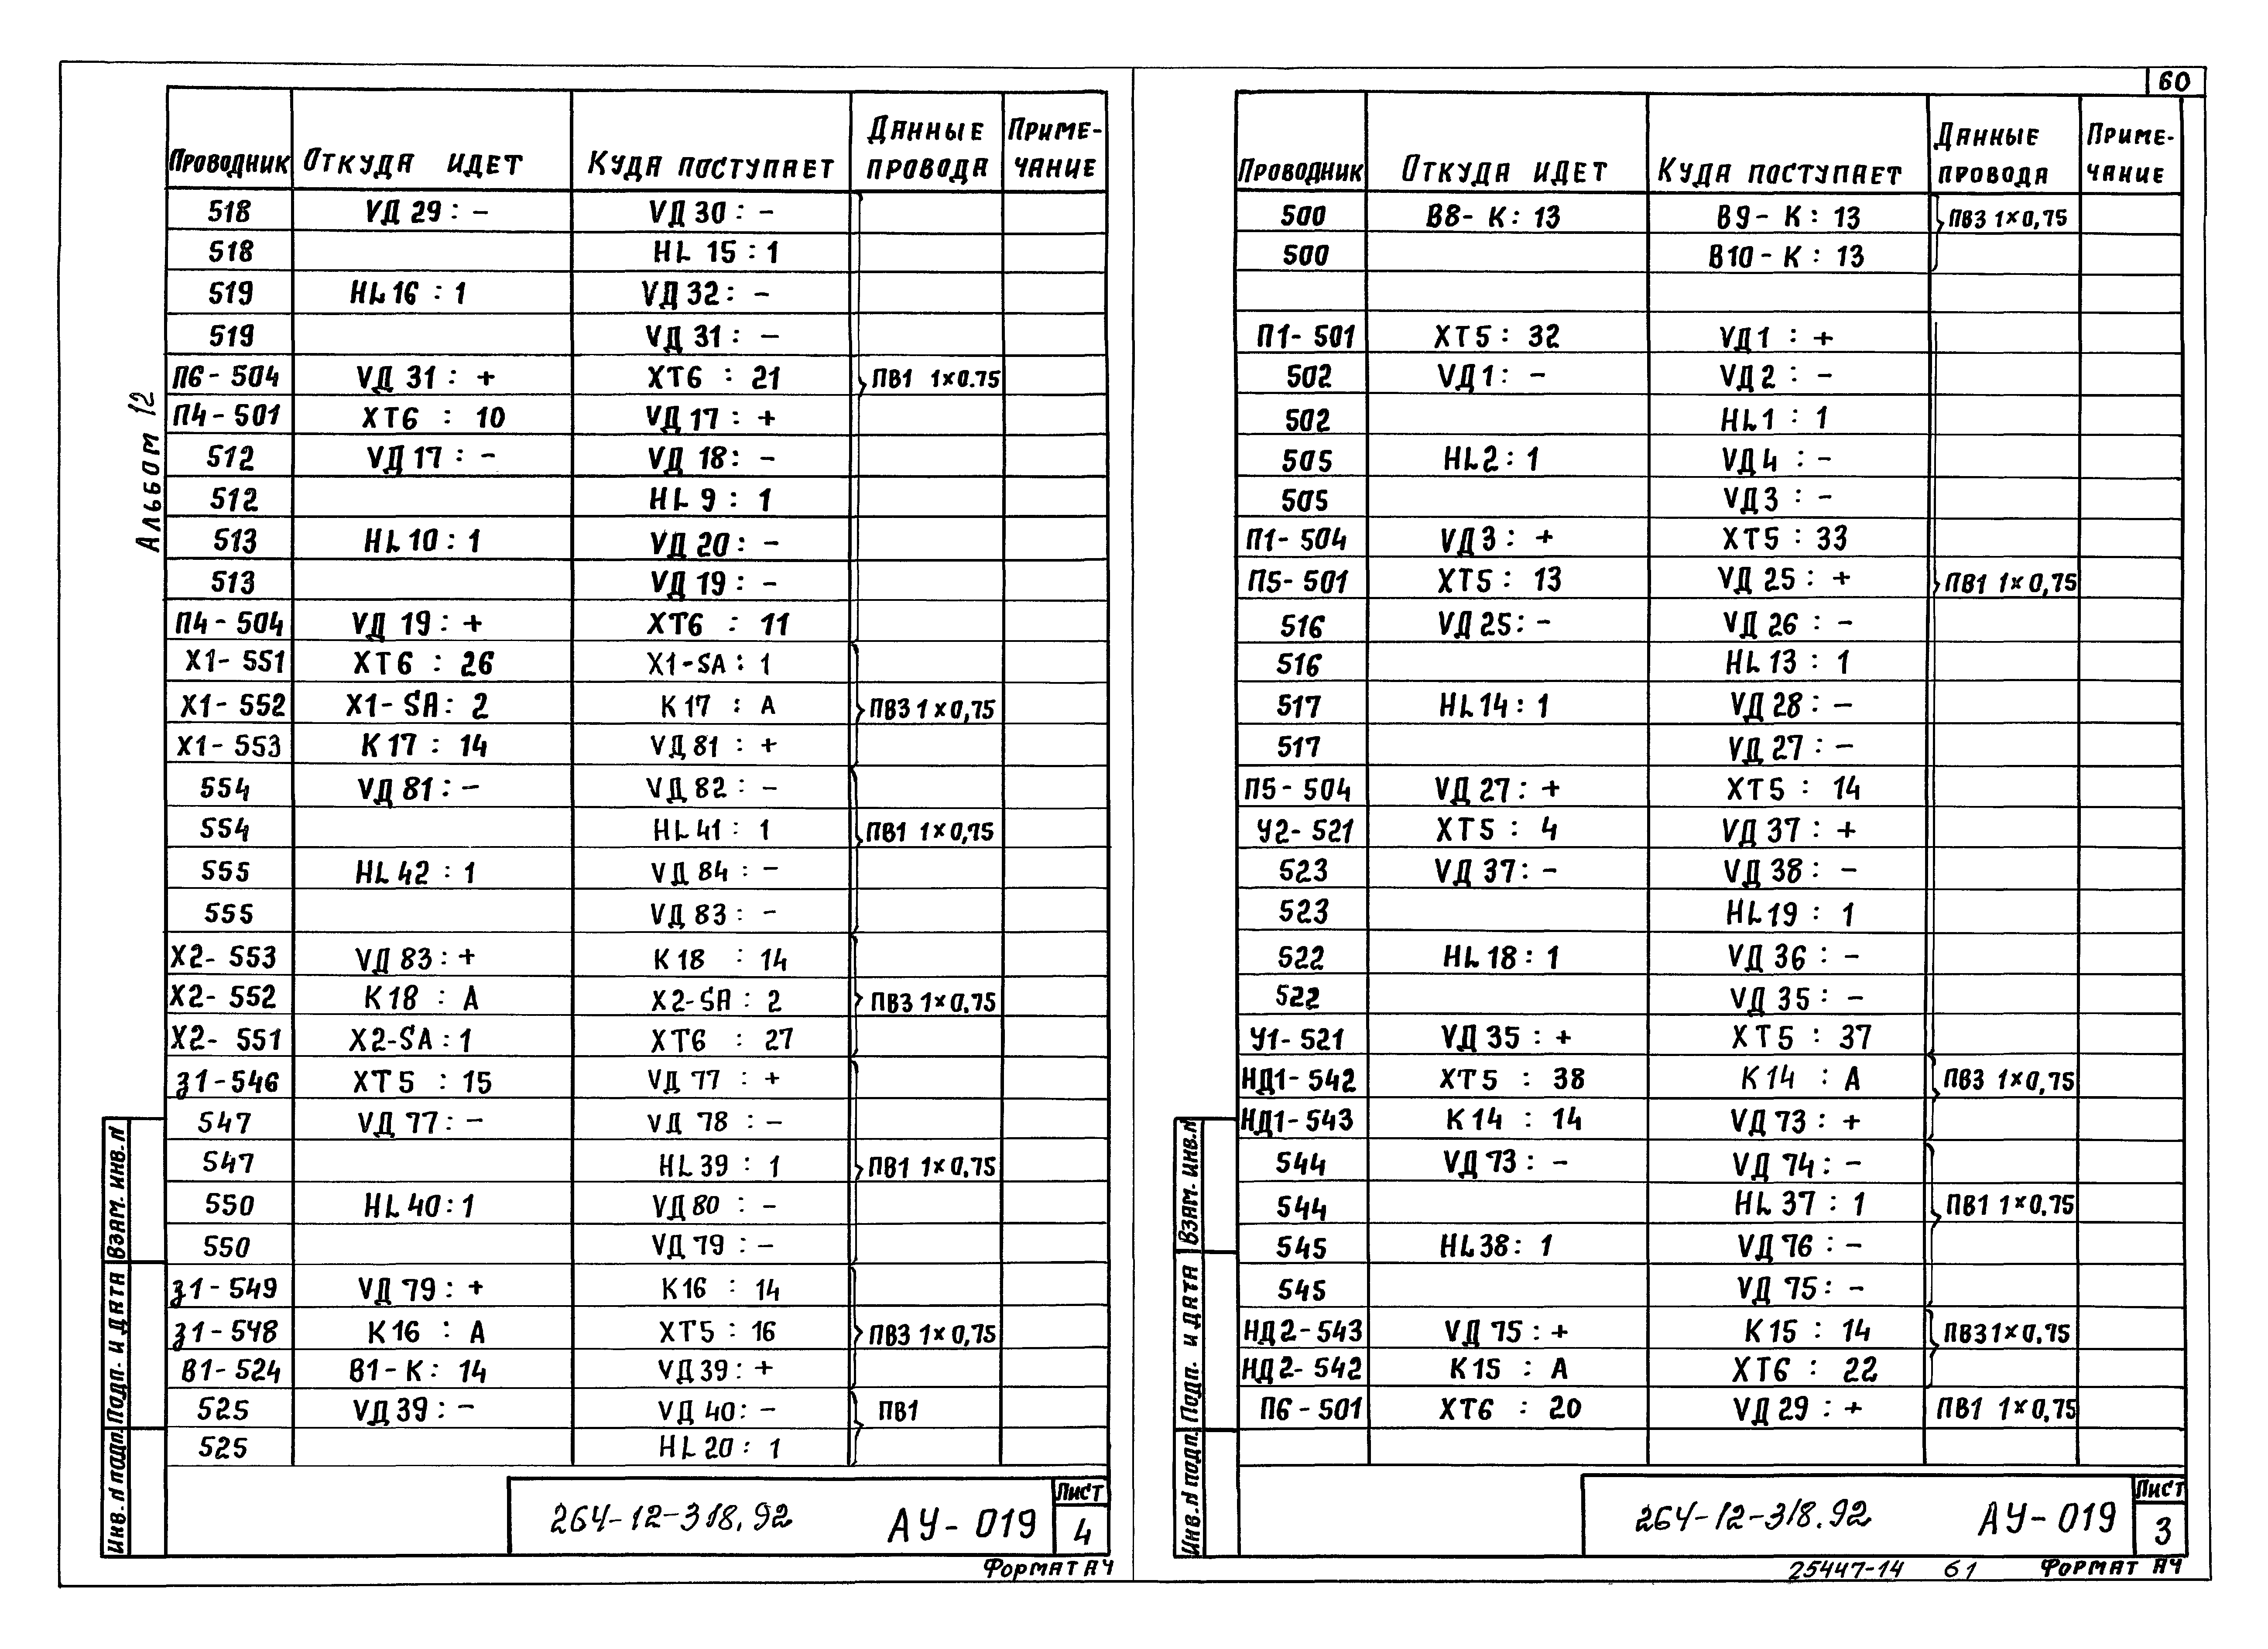 60
Альбом 12
Проводник Откуда идет Куда поступает Данные провода Приме-чание
518 VД 29 : - VД 30 : -
518 HL 15 : 1
519 HL 16 : 1 VД 32 : -
519 VД 31 : -
П6 - 504 VД 31 : + ХТ6 : 21 ПВ1 1×0.75
П4 - 501 ХТ6 : 10 VД 17 : +
512 VД 17 : - VД 18 : -
512 HL 9 : 1
513 HL 10 : 1 VД 20 : -
513 VД 19 : -
П4 - 504 VД 19 : + ХТ6 : 11
Х1 - 551 ХТ6 : 26 Х1-SA : 1
Х1 - 552 Х1- SA : 2 К17 : А ПВ3 1×0,75
Х1 - 553 К17 : 14 VД 81 : +
554 VД 81 : - VД 82 : -
554 HL 41 : 1 ПВ1 1×0,75
555 HL 42 : 1 VД 84 : -
555 VД 83 : -
Х2 - 553 VД 83 : + К18 : 14
Х2 - 552 К18 : А Х2-SA : 2 ПВ3 1×0,75
Х2 - 551 Х2-SA : 1 ХТ6 : 27
З1 - 546 ХТ5 : 15 VД 77 : +
547 VД 77 : - VД 78 : -
547 HL 39 : 1 ПВ1 1×0,75
550 HL 40 : 1 VД 80 : -
550 VД 79 : -
З1 - 549 VД 79 : + К16 : 14
З1 - 548 К16 : А ХТ5 : 16 ПВ3 1×0,75
В1 - 524 В1-К : 14 VД 39 : +
525 VД 39 : - VД 40 : - ПВ1
525 HL 20 : 1
Взам. инв. N
Подп. и дата
Инв. N подл.
264-12-318.92 АУ-019 Лист 4
Формат А4
Проводник Откуда идет Куда поступает Данные провода Приме-чание
500 В8- К : 13 В9- К : 13 ПВ3 1×0,75
500 В10 - К : 13
П1 - 501 ХТ5 : 32 VД 1 : +
502 VД 1 : - VД 2 : -
502 HL 1 : 1
505 HL 2 : 1 VД 4 : -
505 VД 3 : -
П1 - 504 VД 3 : + ХТ5 : 33
П5 - 501 ХТ5 : 13 VД 25 : + ПВ1 1×0,75
516 VД 25 : - VД 26 : -
516 HL 13 : 1
517 HL 14 : 1 VД 28 : -
517 VД 27 : -
П5 - 504 VД 27 : + ХТ5 : 14
У2 - 521 ХТ5 : 4 VД 37 : +
523 VД 37 : - VД 38 : -
523 HL 19 : 1
522 HL 18 : 1 VД 36 : -
522 VД 35 : -
У1 - 521 VД 35 : + ХТ5 : 37
НД1 - 542 ХТ5 : 38 К14 : А ПВ3 1×0,75
НД1 - 543 К14 : 14 VД 73 : +
544 VД 73 : - VД 74 : -
544 HL 37 : 1 ПВ1 1×0,75
545 HL 38 : 1 VД 76 : -
545 VД 75 : -
НД2 - 543 VД 75 : + К15 : 14 ПВ3 1×0,75
НД2 - 542 К15 : А ХТ6 : 22
П6 - 501 ХТ6 : 20 VД 29 : + ПВ1 1×0,75
Взам. инв. N
Подп. и дата
Инв. N подл.
264-12-318.92 АУ-019 Лист 3
25447-14 61 Формат А4